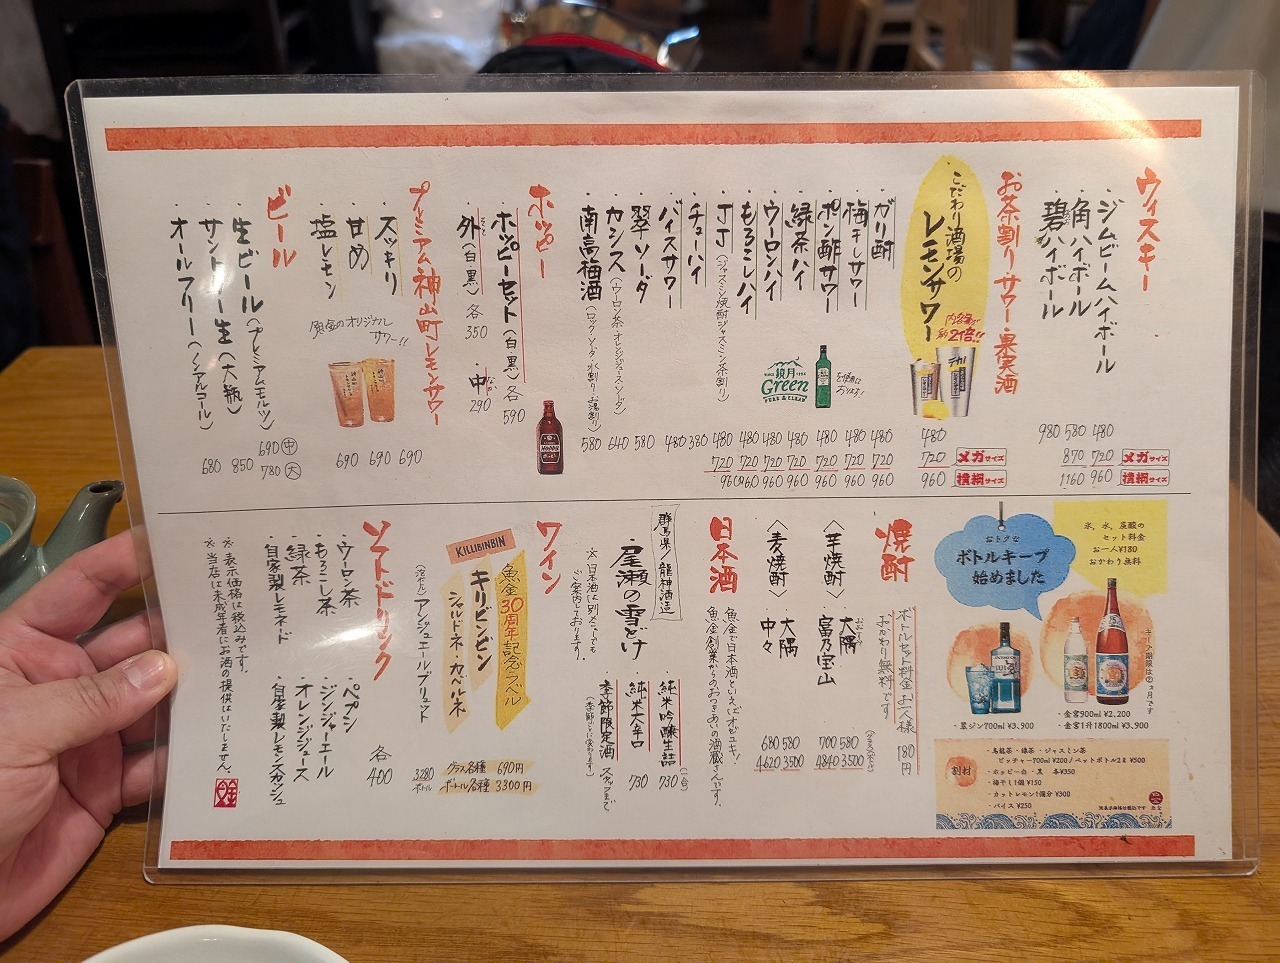 ウィスキー
・ジムビームハイボール 480 720 960
・角ハイボール 580 870 1160
・碧ハイボール 980
メガサイズ
横綱サイズ
お茶割り・サワー・果実酒
こだわり酒場の
レモンサワー 480 720 960
内容量が
約2倍!!
メガサイズ
横綱サイズ
・ガリ酎 480 720 960
・梅干しサワー 480 720 960
・ポン酢サワー 480 720 960
・緑茶ハイ 480 720 960
・ウーロンハイ 480 720 960
・もろこしハイ 480 720 960
・JJ(ジャスミン焼酎ジャスミン茶割り) 480 720 960
・チューハイ 380
・バイスサワー 480
・翠ソーダ 580
・カシス(ウーロン茶・オレンジジュース・ソーダ) 640
・南高梅酒(ロック・ソーダ・水割り・お湯割り) 580
鏡月
Green
PURE & CLEAN
を使用しております!
ホッピー
・ホッピーセット(白・黒)各 590
・外(白・黒)各 350
・中 290
プレミアム神山町レモンサワー
・スッキリ 690
・甘め 690
・塩レモン 690
魚金のオリジナル
サワー!!
ビール
・生ビール(プレミアムモルツ) 690 中 780 大
・サントリー生(大瓶) 850
・オールフリー(ノンアルコール) 680
おトクな
ボトルキープ
始めました
氷、水、炭酸の
セット料金
お一人¥180
おかわり無料
・翠ジン700ml ¥3,900
・金宮900ml ¥2,200
・金宮1升1800ml ¥3,900
割材
・烏龍茶・緑茶・ジャスミン茶
ピッチャー700ml ¥200/ペットボトル2ℓ ¥500
・ホッピー白・黒 各¥350
・梅干し1個 ¥150
・カットレモン1個分 ¥300
・バイス ¥250
焼酎
ボトルセット料金お一人様 180円
おかわり無料です
〈芋焼酎〉
・大隅 580 3500
・富乃宝山 700 4840
〈麦焼酎〉
・大隅 580 3500
・中々 680 4620
日本酒
魚金で日本酒といえばオゼユキ!
魚金創業からのおつきあいの酒蔵さんです。
群馬県/龍神酒造
・尾瀬の雪どけ
純米吟醸生詰 930(一合)
純米大辛口 730
季節限定酒 スタッフまで
(季節ごとに変わります)
※日本酒は別メニューでも
ご案内しております。
ワイン
KILLIBINBIN
魚金30周年記念ラベル
キリビンビン
シャルドネ・カベルネ
グラス各種 690円
ボトル各種 3300円
(泡ボトル)アンジュエールブリュット 3280 ボトル
ソフトドリンク
・ウーロン茶
・もろこし茶
・緑茶
・自家製レモネード
・ペプシ
・ジンジャーエール
・オレンジジュース
・自家製レモンスカッシュ
各400
※表示価格は税込みです。
※当店は未成年者にお酒の提供はいたしません。